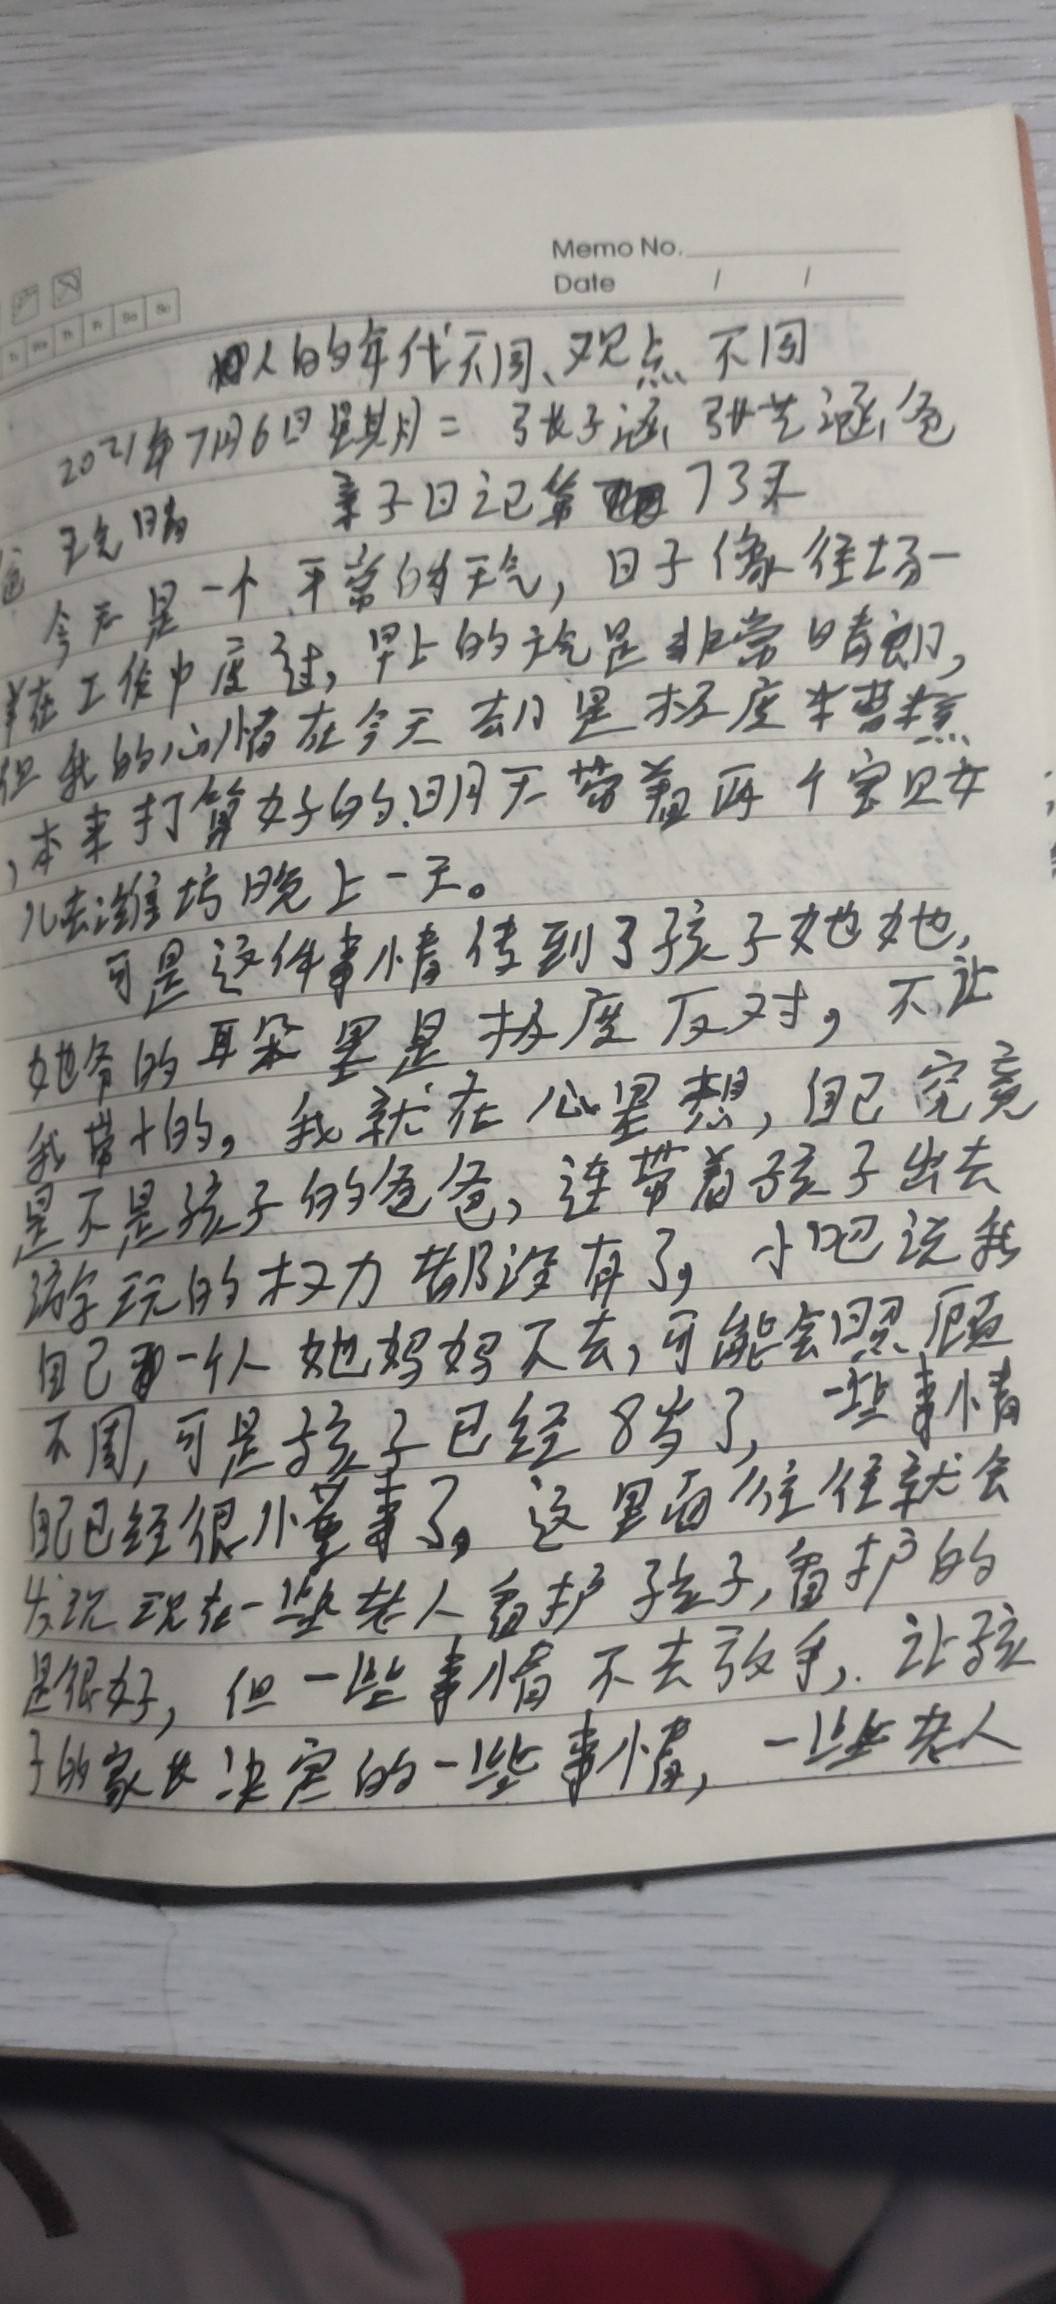 Memo No.
Date / /
人的年代不同、观点不同
2021年7月6日星期二 张子涵 张艺涵爸
爸 天气晴 亲子日记第73天
今天是一个平常的天气，日子像往场一
样在工作中度过，早上的天气是非常晴朗，
但我的心情在今天却是极度糟糕
，本来打算好的明天带着两个宝贝女
儿去潍坊晚上一天。
可是这件事情传到了孩子她她，
她爷的耳朵里是极度反对，不让
我带十的，我就在心里想，自己究竟
是不是孩子的爸爸，连带着孩子出去
游学玩的权力都没有了，小吧说我
自己一个人她妈妈不去，可能会照顾
不周，可是孩子已经8岁了，一些事情
自己已经很懂事了。这里面往往就会
发现现在一些老人看护孩子，看护的
是很好，但一些事情不去放手，让孩
子的家长决定的一些事情，一些老人